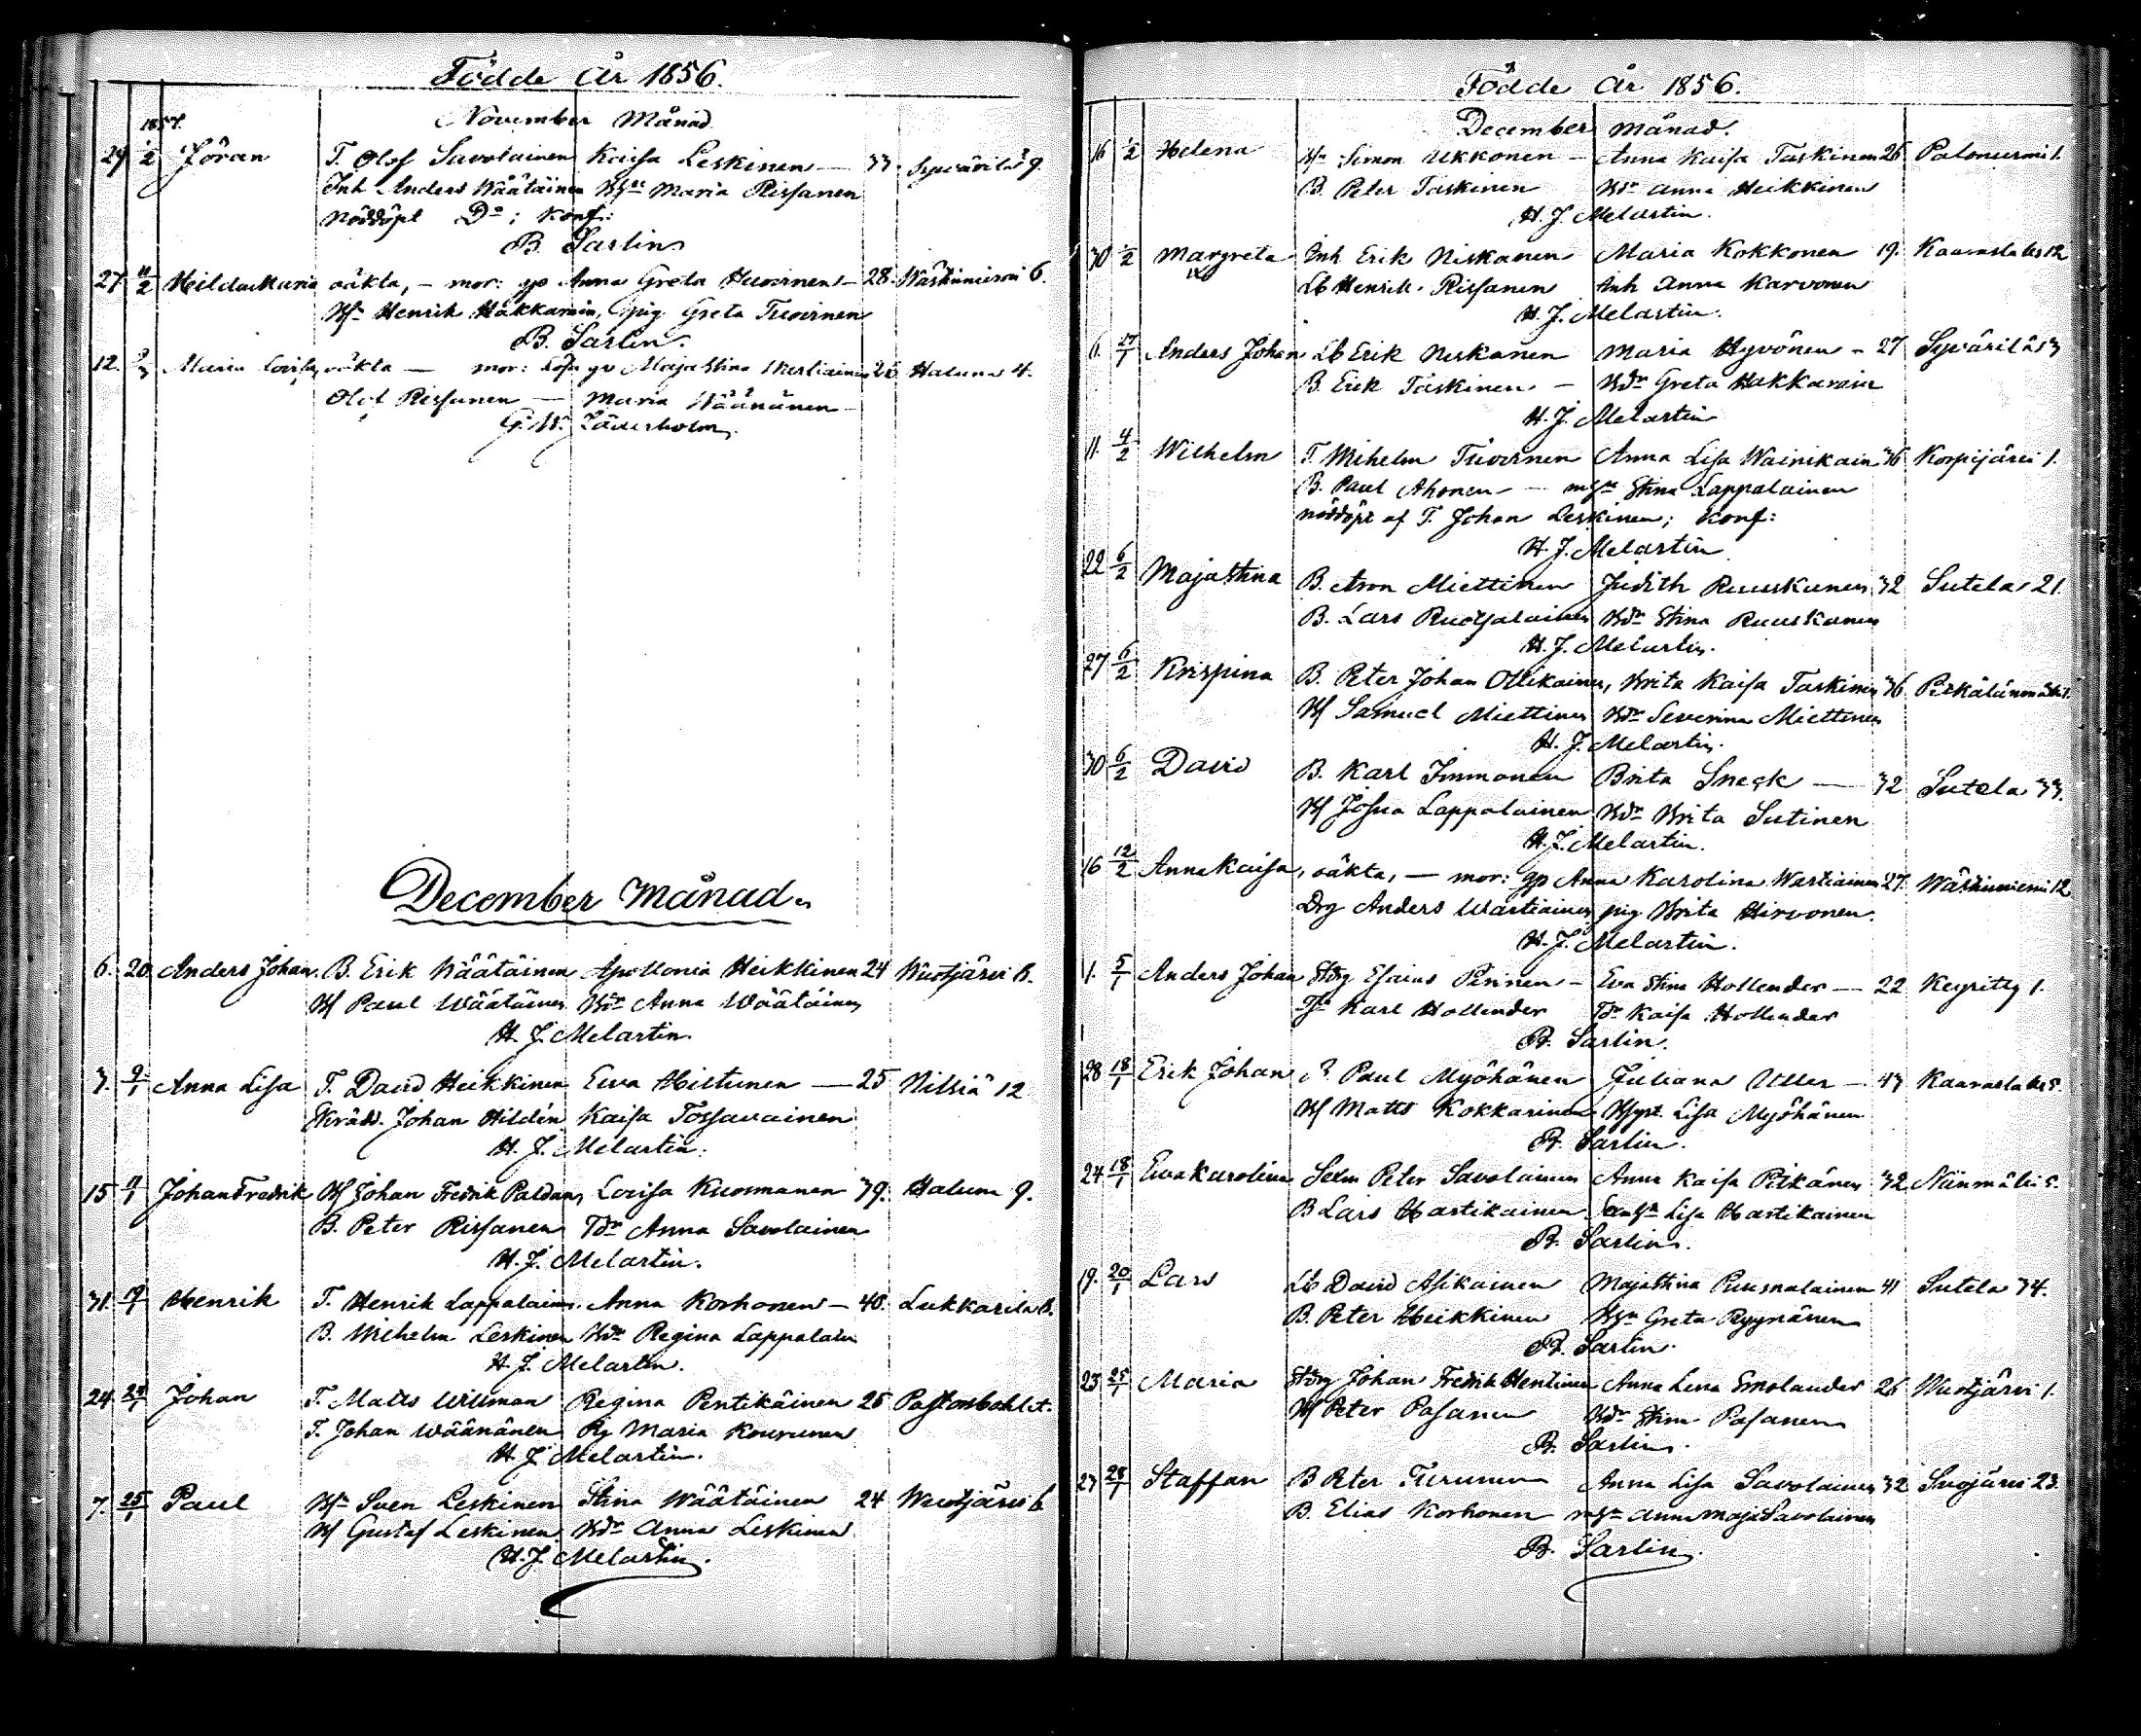 Födde år 1856.
November Månad
1857.
29 1/2 Jöran T. Olof Savolainen Kaisa Leskinen — 33. Syvärilä 9.
Inh Anders Wäätäinen Maria Rissanen
Nöddöpt Do; Konf:
B. Sarlin
27. 11/2 Hilda Maria oäkta, — mor: Anna Greta Huovinen — 28. 6.
Henrik Hakkarain, pig Greta Tuovinen
B. Sarlin.
12. Maria Lovisa, oäkta — mor: Maja Stina 26 Haluna 4.
Olof Rissanen — Maria Väänänen
December Månad.
6. 20 Anders Johan. B. Erik Wäätäinen Apollonia Heikkinen 24 Wuotjärvi 13.
Paul Wäätäinen Anna Wäätäinen
H. J. Melartin.
3. 9/1 Anna Lisa T. David Heikkinen Ewa Hiltunen — 25 Nilsiä 12
Skrädd. Johan Hildén Kaisa Tossavainen
H. J. Melartin.
15 11/1 Johan Fredrik Johan Fredrik Paldan, Lovisa Kuosmanen 39. Haluna 9.
B. Peter Rissanen Anna Savolainen
H. J. Melartin.
31. Henrik T. Henrik Lappalain. Anna Korhonen — 40. Lukkarila
B. Wilhelm Leskinen Regina Lappalain
H. J. Melartin.
24. Johan T. Matts Willman Regina Pentikäinen 26
T. Johan Wäänänen Pig Maria Kourunen
H. J. Melartin.
7. 25/1 Paul Sven Leskinen Stina Wäätäinen 24 Wuotjärvi 6
Gustaf Leskinen Anna Leskinen
H. J. Melartin.
Födde år 1856.
December månad.
16 1/2 Helena Simon Ukkonen — Anna Kaisa Taskinen 26 Paloniemi 1.
B. Peter Taskinen Anna Heikkinen
H. J. Melartin.
30 1/2 Margreta Inh Erik Niskanen Maria Kokkonen 19. Kaaraslaks 12
Lb Henrik Rissanen Inh Anna Karvonen
H. J. Melartin.
6. 17/1 Anders Johan Lb Erik Niskanen Maria Hyvönen — 27 Syvärilä 3
B. Erik Taskinen — Greta Hakkarain
H. J. Melartin
11. 4/2 Wilhelm T. Wilhelm Tuovinen Anna Lisa Wainikain 36 Korpijärvi 1.
B. Paul Ahonen — Stina Lappalainen
nöddöpt af T. Johan Leskinen; Konf:
H. J. Melartin
22 6/2 Maja Stina B. Aron Miettinen Judith Ruuskanen 32 Sutela 21.
B. Lars Ruotsalainen Stina Ruuskanen
H. J. Melartin.
27 6/2 Krispina B. Peter Johan Ollikainen, Brita Kaisa Taskinen 36
Samuel Miettinen Severina Miettinen
H. J. Melartin.
30 6/2 David B. Karl Immonen Brita Sneck — 32 Sutela 33.
Josua Lappalainen Brita Sutinen
H. J. Melartin.
16 12/2 Anna Kaisa, oäkta, — mor: Anna Karolina Wartiainen 27. 12
Drg Anders Wartiainen pig Brita Hirvonen.
H. J. Melartin.
1. 5/1 Anders Johan Esaias Pennen — Eva Stina Hollender — 22 Keyritty 1.
Karl Hollender Kaisa Hollender
B. Sarlin.
28 18/1 Erik Johan Paul Myöhänen Juliana — 43 Kaaraslaks 5.
Matts Kokkarinen Lisa Myöhänen
B. Sarlin.
24 18/1 Ewa Karolina Peter Savolainen Anna Kaisa Pitkänen 32 Niinmäki 5.
B Lars Hartikainen Lisa Hartikainen
B. Sarlin.
19. 20/1 Lars Lb David Asikainen Maja Stina 41 Sutela 34.
B. Peter Heikkinen Greta Ryynänen
B. Sarlin.
23 25/1 Maria Johan Fredrik Hentinen Anna Lena Smolander 26 Wuotjärvi 1.
Peter Pasanen Stina Pasanen
B. Sarlin.
23 28/1 Staffan B Peter Turunen Anna Lisa Savolainen 32 Suojärvi 23.
B. Elias Korhonen Anna Maja Savolainen
B. Sarlin.